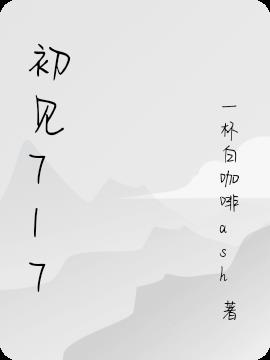 初见717
一杯白咖啡ash 著